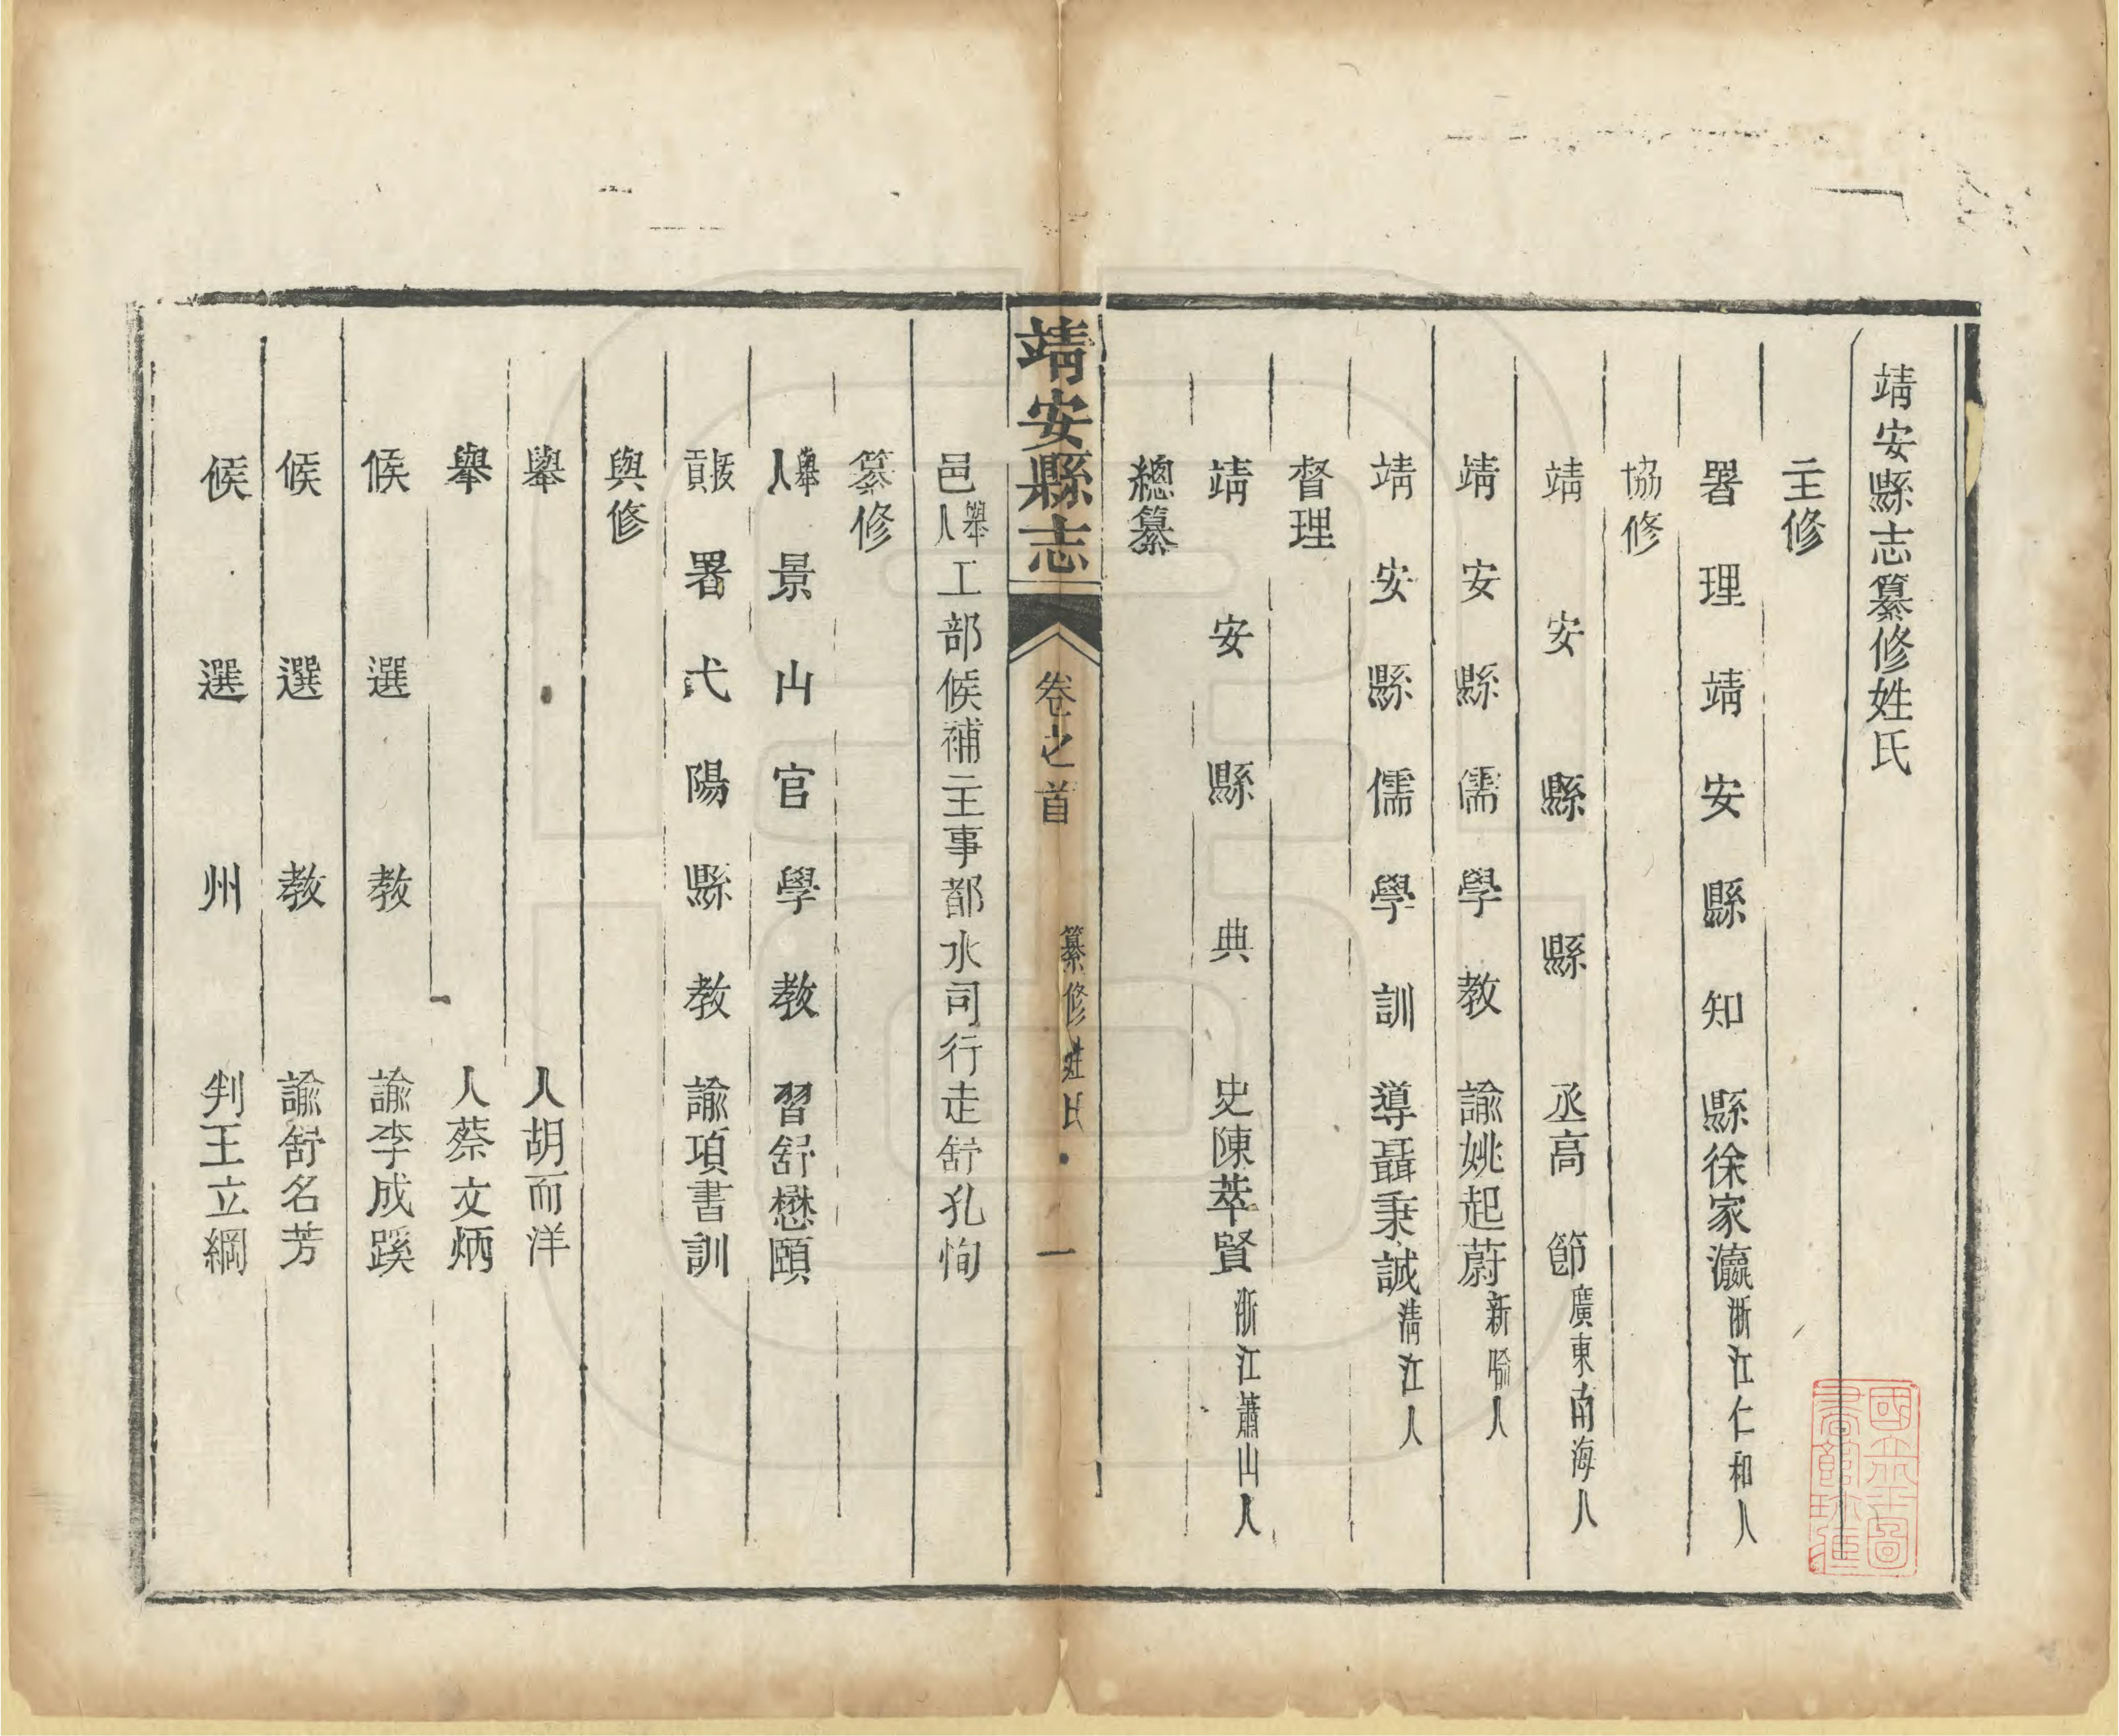 靖安縣志纂修姓氏
主修
署理靖安縣知縣徐家瀛浙江仁和人
協修
靖安縣縣丞高節廣東南海人
靖安縣儒學教諭姚起蔚新喻人
靖安縣儒學訓導聶秉誠淸江人
督理
靖安縣典史陳萃賢浙江蕭山人
總纂
靖安縣志
卷之首
纂修姓氏
一
邑舉人工部候補主事都水司行走舒孔恂
纂修
舉人景山官學教習舒懋頤
拔貢署弋陽縣教諭項書訓
與修
舉人胡而洋
舉人蔡文炳
候選教諭李成蹊
候選教諭舒名芳
候選州判王立綱
國立北平圖
書館珍藏